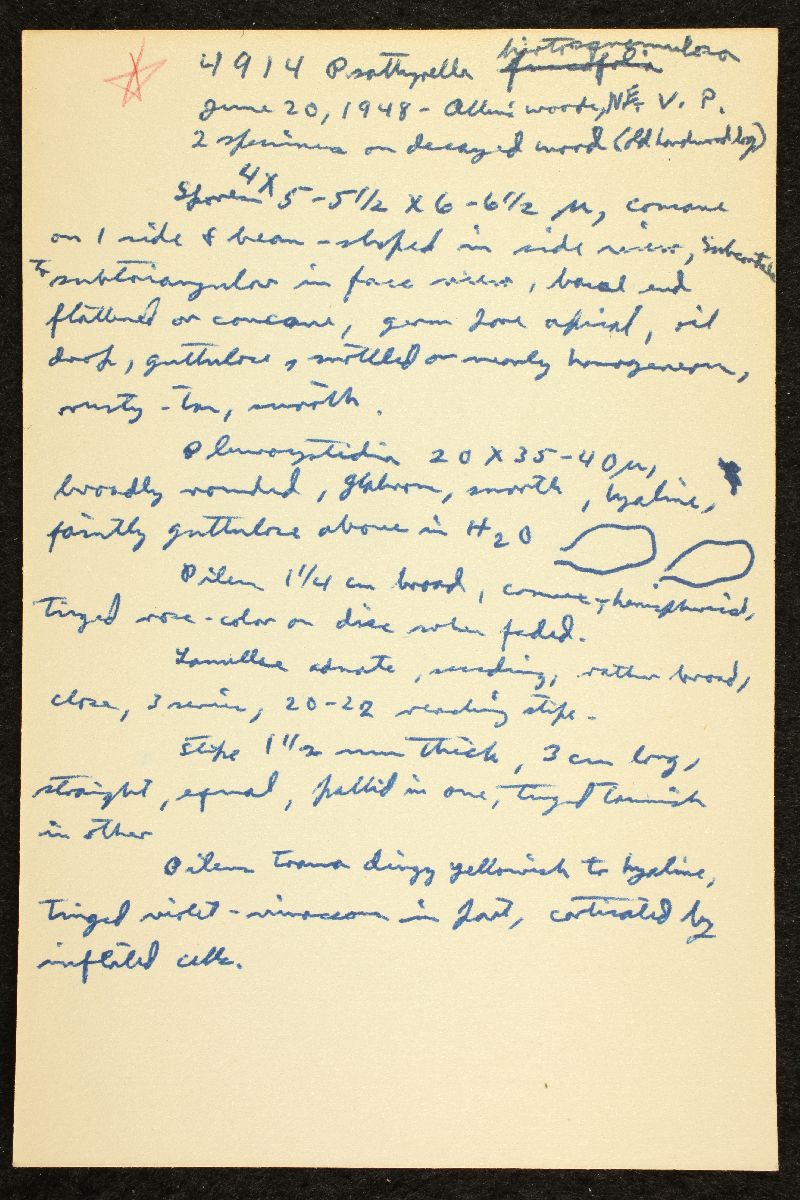 4914 Psathyrella hirtosquamulosa
fuscofolia
June 20, 1948 - woods, NE. V. P.
2 specimens on decayed wood (old hardwood log)
Spores 4 X 5-5 1/2 X 6-6 1/2 µ, concave
on 1 side & bean-shaped in side view, subcordate
to subtriangular in face view, basal end
flattened or concave, germ pore apical, oil
drop, guttulose, mottled or nearly homogeneous,
rusty-tan, smooth.
Pleurocystidia 20 X 35-40 µ,
broadly rounded, glabrous, smooth, hyaline,
faintly guttulose above in H2O
Pileus 1 1/4 cm broad, convex-hemispherical,
tinged rose-color on disc when faded.
Lamellae adnate, seceding, rather broad,
close, 3 series, 20-22 reaching stipe.
Stipe 1 1/2 mm thick, 3 cm long,
straight, equal, pallid in one, tinged tannish
in other
Pileus trama dingy yellowish to hyaline,
tinged violet-vinaceous in part, corticated by
inflated cells.